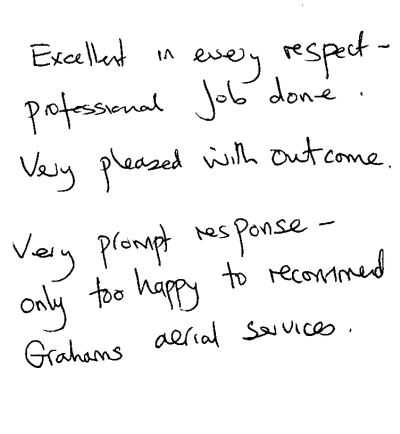 Excellent in every respect -
professional Job done.
Very pleased with outcome.
Very prompt response -
only too happy to recommed
Grahams aerial services.